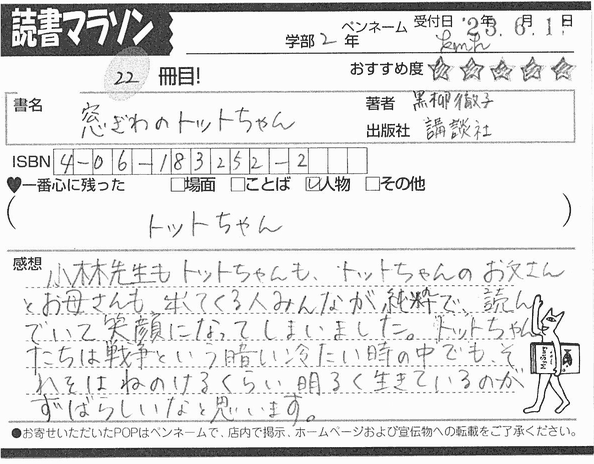 読書マラソン
学部2年 ペンネーム kmh 受付日 '23年6.1.日
22 冊目! おすすめ度 ☆☆☆☆☆
書名 窓ぎわのトットちゃん
著者 黒柳徹子
出版社 講談社
ISBN 4-06-183252-2
♥一番心に残った □場面 □ことば ☑人物 □その他
(トットちゃん)
感想
小林先生もトットちゃんも、トットちゃんのお父さん
とお母さんも 出てくる人みんなが純粋で、読ん
でいて笑顔になってしまいました。トットちゃん
たちは戦争という暗い冷たい時の中でも、そ
れをはねのけるくらい明るく生きているのが
すばらしいなと思います。
●お寄せいただいたPOPはペンネームで、店内で掲示、ホームページおよび宣伝物への転載をご了承ください。